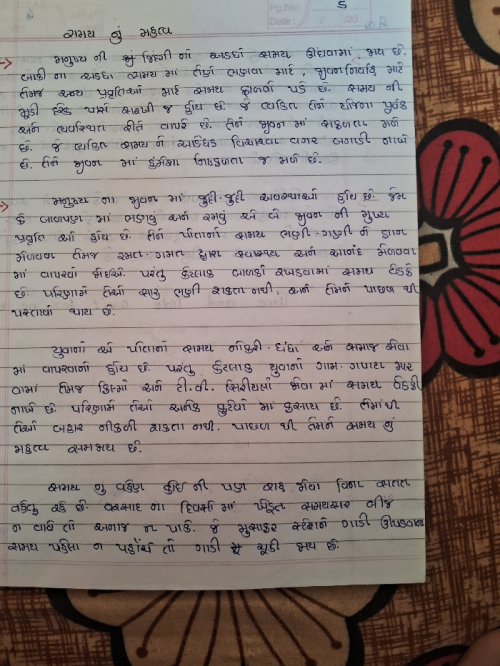 Pg.No: 5
Date: / /20
સમય નું મહત્વ
મનુષ્ય ની જિંદગી નો અડધો સમય ઊંઘવામાં જાય છે.
બાકી ના અડધા સમય માં તેણે ભણવા માટે, જીવનનિર્વાહ માટે
તેમજ અન્ય પ્રવૃતિઓ માટે સમય ફાળવો પડે છે. સમય ની
મૂડી દરેક પાસે સરખી જ હોય છે. જે વ્યકિત તેને યોજના પૂર્વક
અને વ્યવસ્થિત રીતે વાપરે છે. તેને જીવન માં સફળતા મળે
છે. જે વ્યકિત સમય ને આડેધડ વિચાર્યા વગર બગાડી નાખે
છે. તેને જીવન માં હંમેશા નિષ્ફળતા જ મળે છે.
મનુષ્ય ના જીવન માં જુદી-જુદી અવસ્થાઓ હોય છે. જેમ
કે બાળપણ માં ભણવું અને રમવું એ બે જીવન ની મુખ્ય
પ્રવૃતિ ઓ હોય છે. તેને પોતાનો સમય ભણી-ગણી ને જ્ઞાન
મેળવવા તેમજ રમત-ગમત દ્વારા સ્વાસ્થ્ય અને આનંદ મેળવવા
માં વાપરવો જોઇએ. પરંતુ કેટલાક બાળકો રખડવામાં સમય વેડફે
છે. પરિણામે તેઓ સારુ ભણી શકતા નથી. અને તેમને પાછળ થી
પસ્તાવો થાય છે.
યુવાનો એ પોતાનો સમય નોકરી-ધંધા અને સમાજ સેવા
માં વાપરવાનો હોય છે. પરંતુ કેટલાક યુવાનો ગામ-ગપાટા માર
વામાં તેમજ ફિલ્મો અને ટી.વી. સિરીયલો જોવા માં સમય વેડફી
નાખે છે. પરિણામે તેઓ અનેક કુટેવો માં ફસાય છે. તેમાંથી
તેઓ બહાર નીકળી શકતા નથી. પાછળ થી તેમને સમય નું
મહત્વ સમજાય છે.
સમય નુ વહેણ કોઇ ની પણ રાહ જોયા વિના સતત
વહેતુ રહે છે. વરસાદ ના દિવસો માં ખેડૂત સમયસર બીજ
ન વાવે તો અનાજ ન પાકે. જે મુસાફર સ્ટેશને ગાડી ઊપડવાના
સમય પહેલા ન પહોંચે તો ગાડી ચૂકી જાય છે.